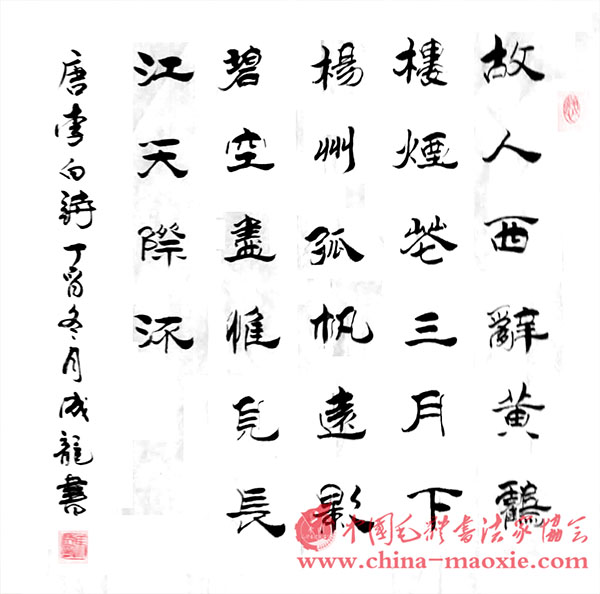 故人西辭黄鶴
樓煙花三月下
楊州孤帆遠影
碧空盡惟見長
江天際流
唐李白詩丁酉冬月成龍書
中國毛體书法家協会
www.china-maoxie.com